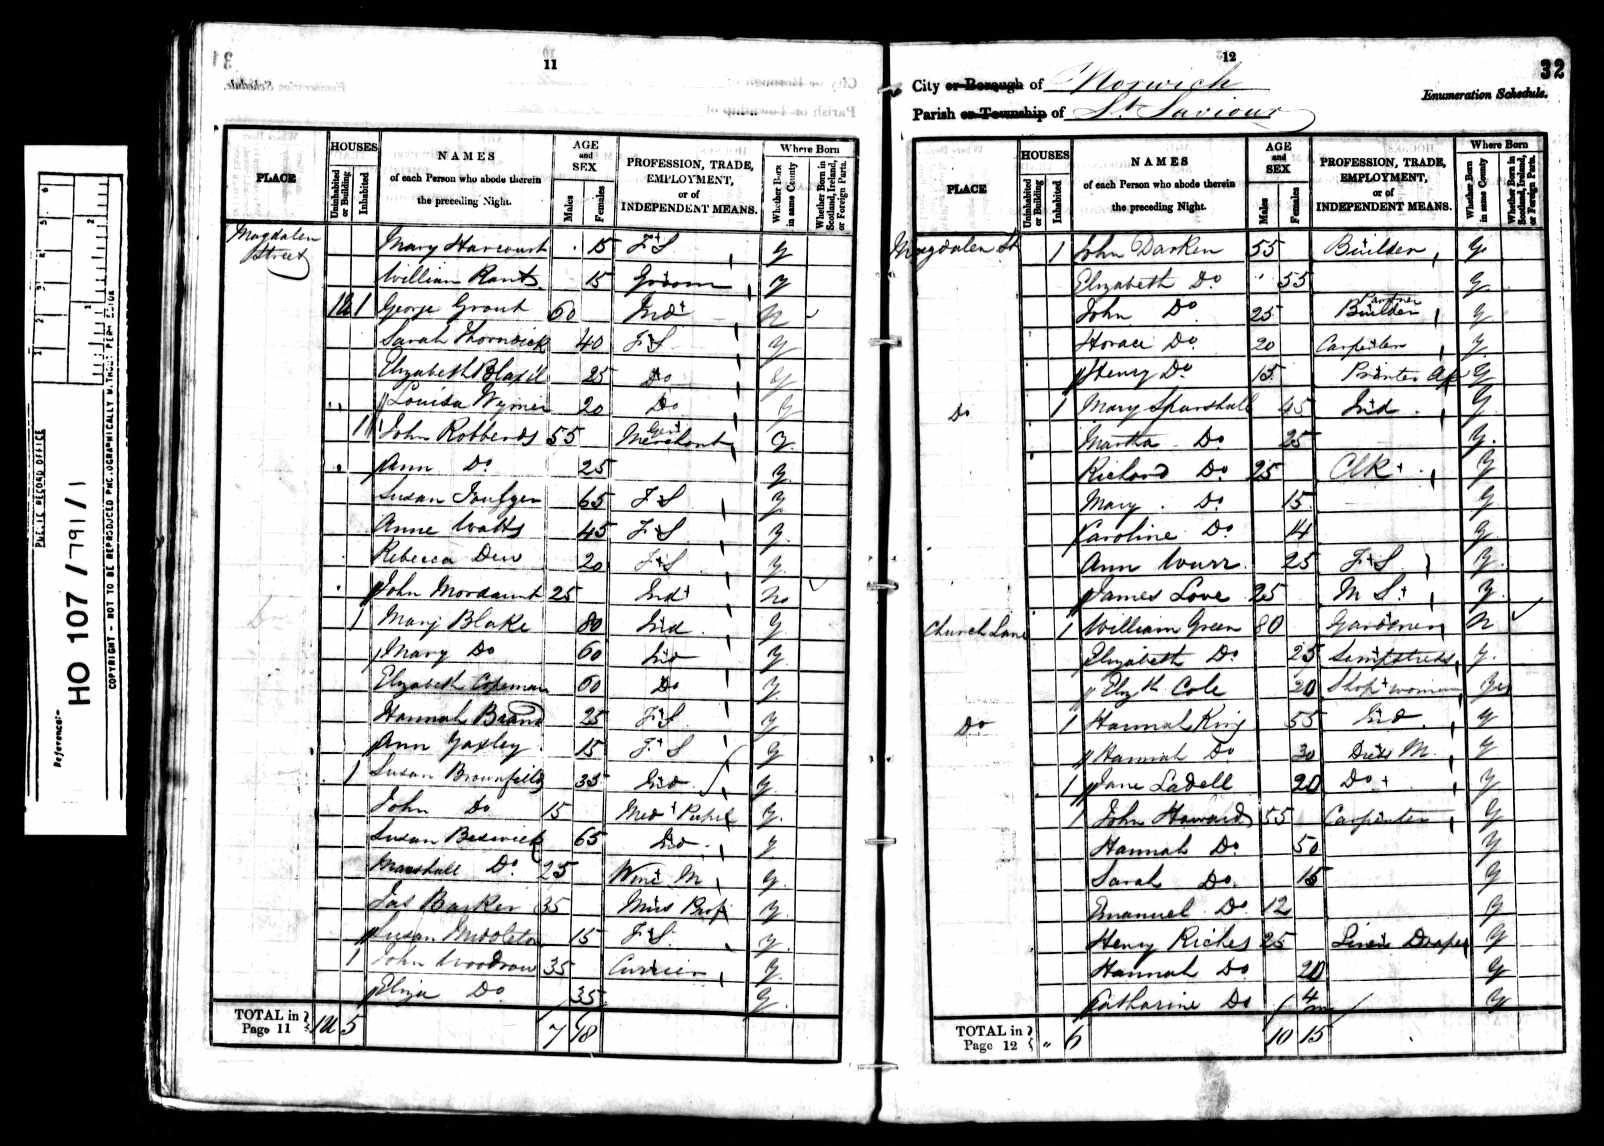 11
PLACE
HOUSES
Uninhabited or Building
Inhabited
NAMES
of each Person who abode therein
the preceding Night.
AGE
and
SEX
Males
Females
PROFESSION, TRADE,
EMPLOYMENT,
or of
INDEPENDENT MEANS.
Where Born
Whether Born in same County
Whether Born in Scotland, Ireland, or Foreign Parts.
Magdalen Street Mary Harcourt 15 F.S y
William Rant 15 Groom y
1U 1 George Grout 60 Ind n
Sarah Thornwick 40 F.S y
Elizabeth 25 Do y
Louisa Wymer 20 Do y
1 John Robberds 55 Merchant y
Ann Do 25 y
Susan 65 F.S y
Anne Watts 45 F.S y
Rebecca Dew 20 F.S y
John Mordaunt 25 Ind no
1 Mary Blake 80 Ind y
Mary Do 60 Ind y
Elizabeth Copeman 60 Do y
Hannah Brand 25 F.S y
Ann Yaxley 15 F.S y
1 Susan Brownfield 35 Ind y
John Do 15 Med Pupil y
Susan Beswick 65 Ind y
Marshall Do 25 Wine M y
Jas Barker 35 Mus Prof y
Susan Middleton 15 F.S y
1 John Woodrow 35 Currier y
Eliza Do 35 y
TOTAL in Page 11 1U 5 7 18
12
32
City or Borough of Norwich
Enumeration Schedule.
Parish or Township of St. Saviour
PLACE
HOUSES
Uninhabited or Building
Inhabited
NAMES
of each Person who abode therein
the preceding Night.
AGE
and
SEX
Males
Females
PROFESSION, TRADE,
EMPLOYMENT,
or of
INDEPENDENT MEANS.
Where Born
Whether Born in same County
Whether Born in Scotland, Ireland, or Foreign Parts.
Magdalen St 1 John Darken 55 Builder y
Elizabeth Do 55 y
John Do 25 Builder y
Horace Do 20 Carpenter y
Henry Do 15 Printer Ap y
Do 1 Mary Sparshall 45 Ind y
Martha Do 25 y
Richard Do 25 Clk y
Mary Do 15 y
Caroline Do 14 y
Ann Wurr 25 F.S y
James Love 25 M S y
Church Lane 1 William Green 80 Gardener n
Elizabeth Do 25 Sempstress y
Elizth Cole 20 Shop woman y
Do 1 Hannah King 55 Ind y
Hannah Do 30 Dress M y
1 Jane Ladell 20 Do y
1 John Howard 55 Carpenter y
Hannah Do 50 y
Sarah Do 15 y
Emanuel Do 12 y
Henry Riches 25 Linen Draper y
Hannah Do 20 y
Catharine Do 4 m y
TOTAL in Page 12 " 6 10 15
Reference:-
PUBLIC RECORD OFFICE
HO 107/791/1
COPYRIGHT - NOT TO BE REPRODUCED PHOTOGRAPHICALLY WITHOUT PERMISSION
1
2
3
4
5
6
1
2